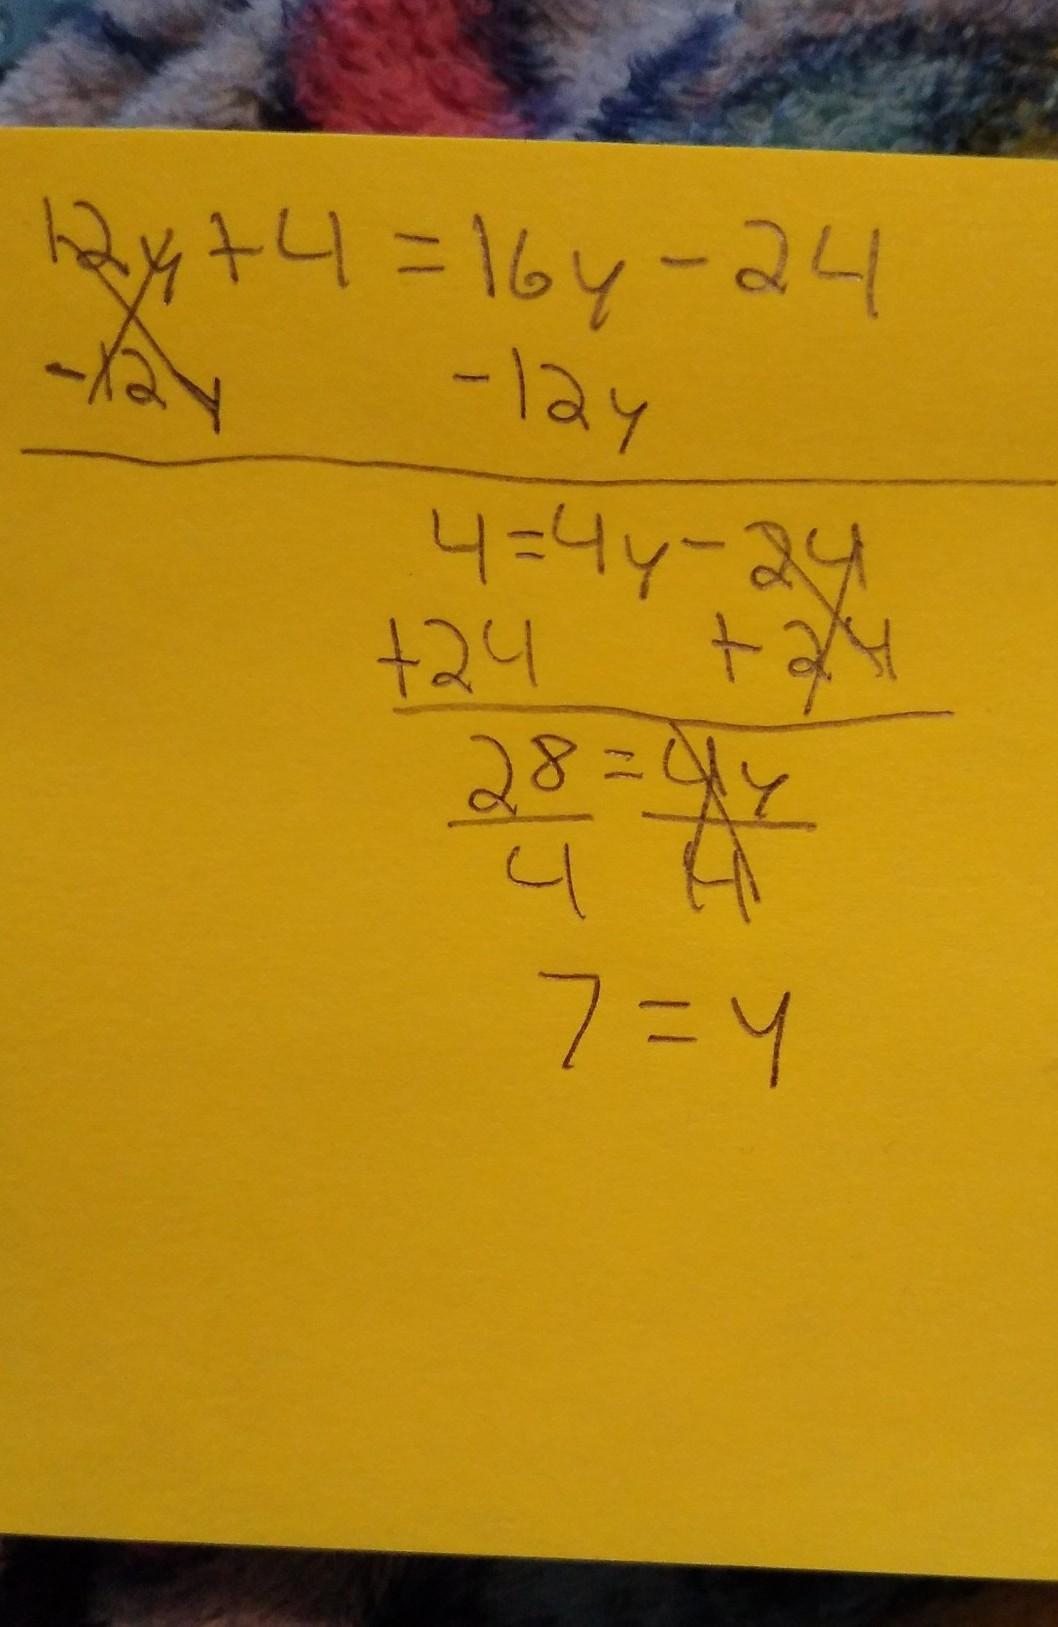 12y + 4 = 16y - 24
-12y -12y
4 = 4y - 24
+24 +24
28 = 4y
4 4
7 = y